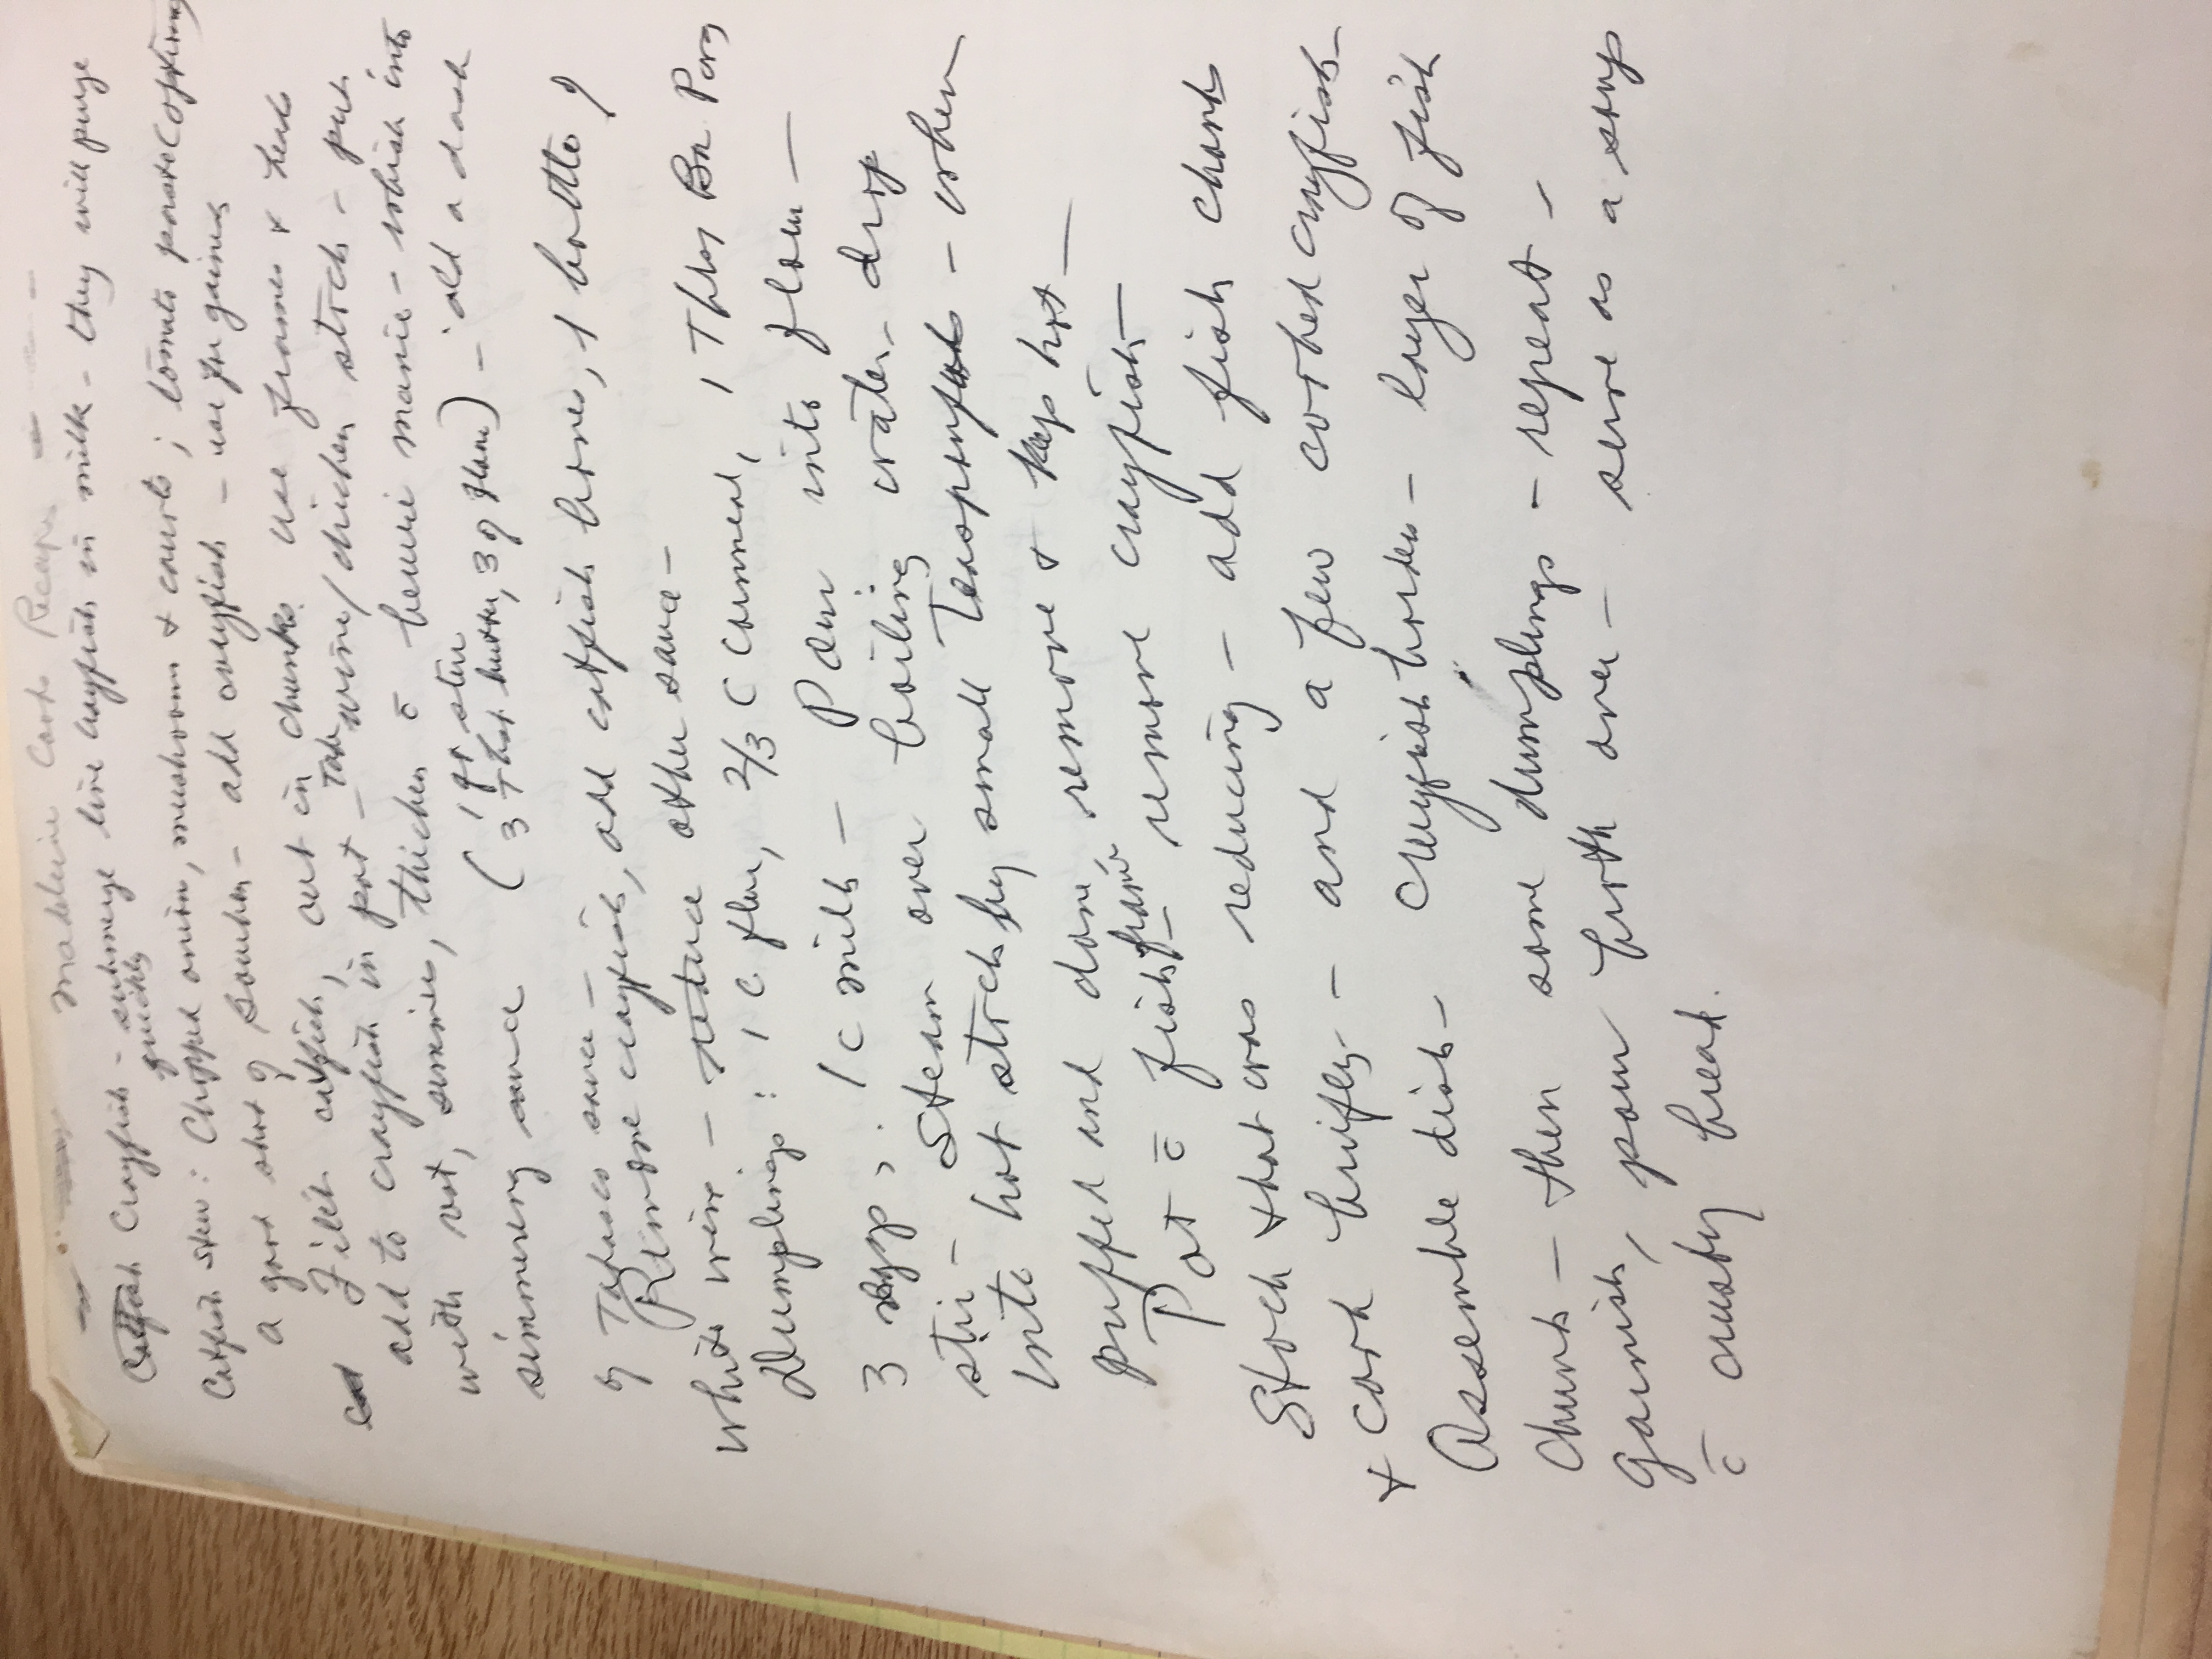 Madeleine Cooks Recape
Catfish Crayfish - submerge live crayfish in milk - they will purge
quickly
Catfish stew: Chopped onion, mushrooms & carrots; tomato paste (optional)
a good shot of Bourbon - add crayfish - use for garnish
Cat Filét catfish, cut in chunks. Use frames & heads
add to crayfish in pot - wine/chicken stock - put
with rest, simmer, thicken c̄ beurre manie - whisk into
simmering sauce (1 qt stew
3 Tbsp butter, 3 of flour) - add a dash
of Tabasco sauce -
Remove crayfish, add catfish bones, 1 bottle of
white wine - reduce other sauce -
Dumplings: 1 c flour, 2/3 c cornmeal, 1 Tbls Ba Pow
3 eggs, 1 c milk - Pour into flour -
stir - Steam over boiling water - drop
into hot stock by small Teaspoonfuls - when
puffed and done, remove & keep hot -
Pot c̄ fish frame - remove crayfish -
Stock that was reducing - add fish chunks
& cook briefly - and a few cooked crayfish -
Assemble dish - Crayfish border - layer of fish
chunks - then some dumplings - repeat -
Garnish, pour broth over - serve as a soup
c̄ crusty bread.